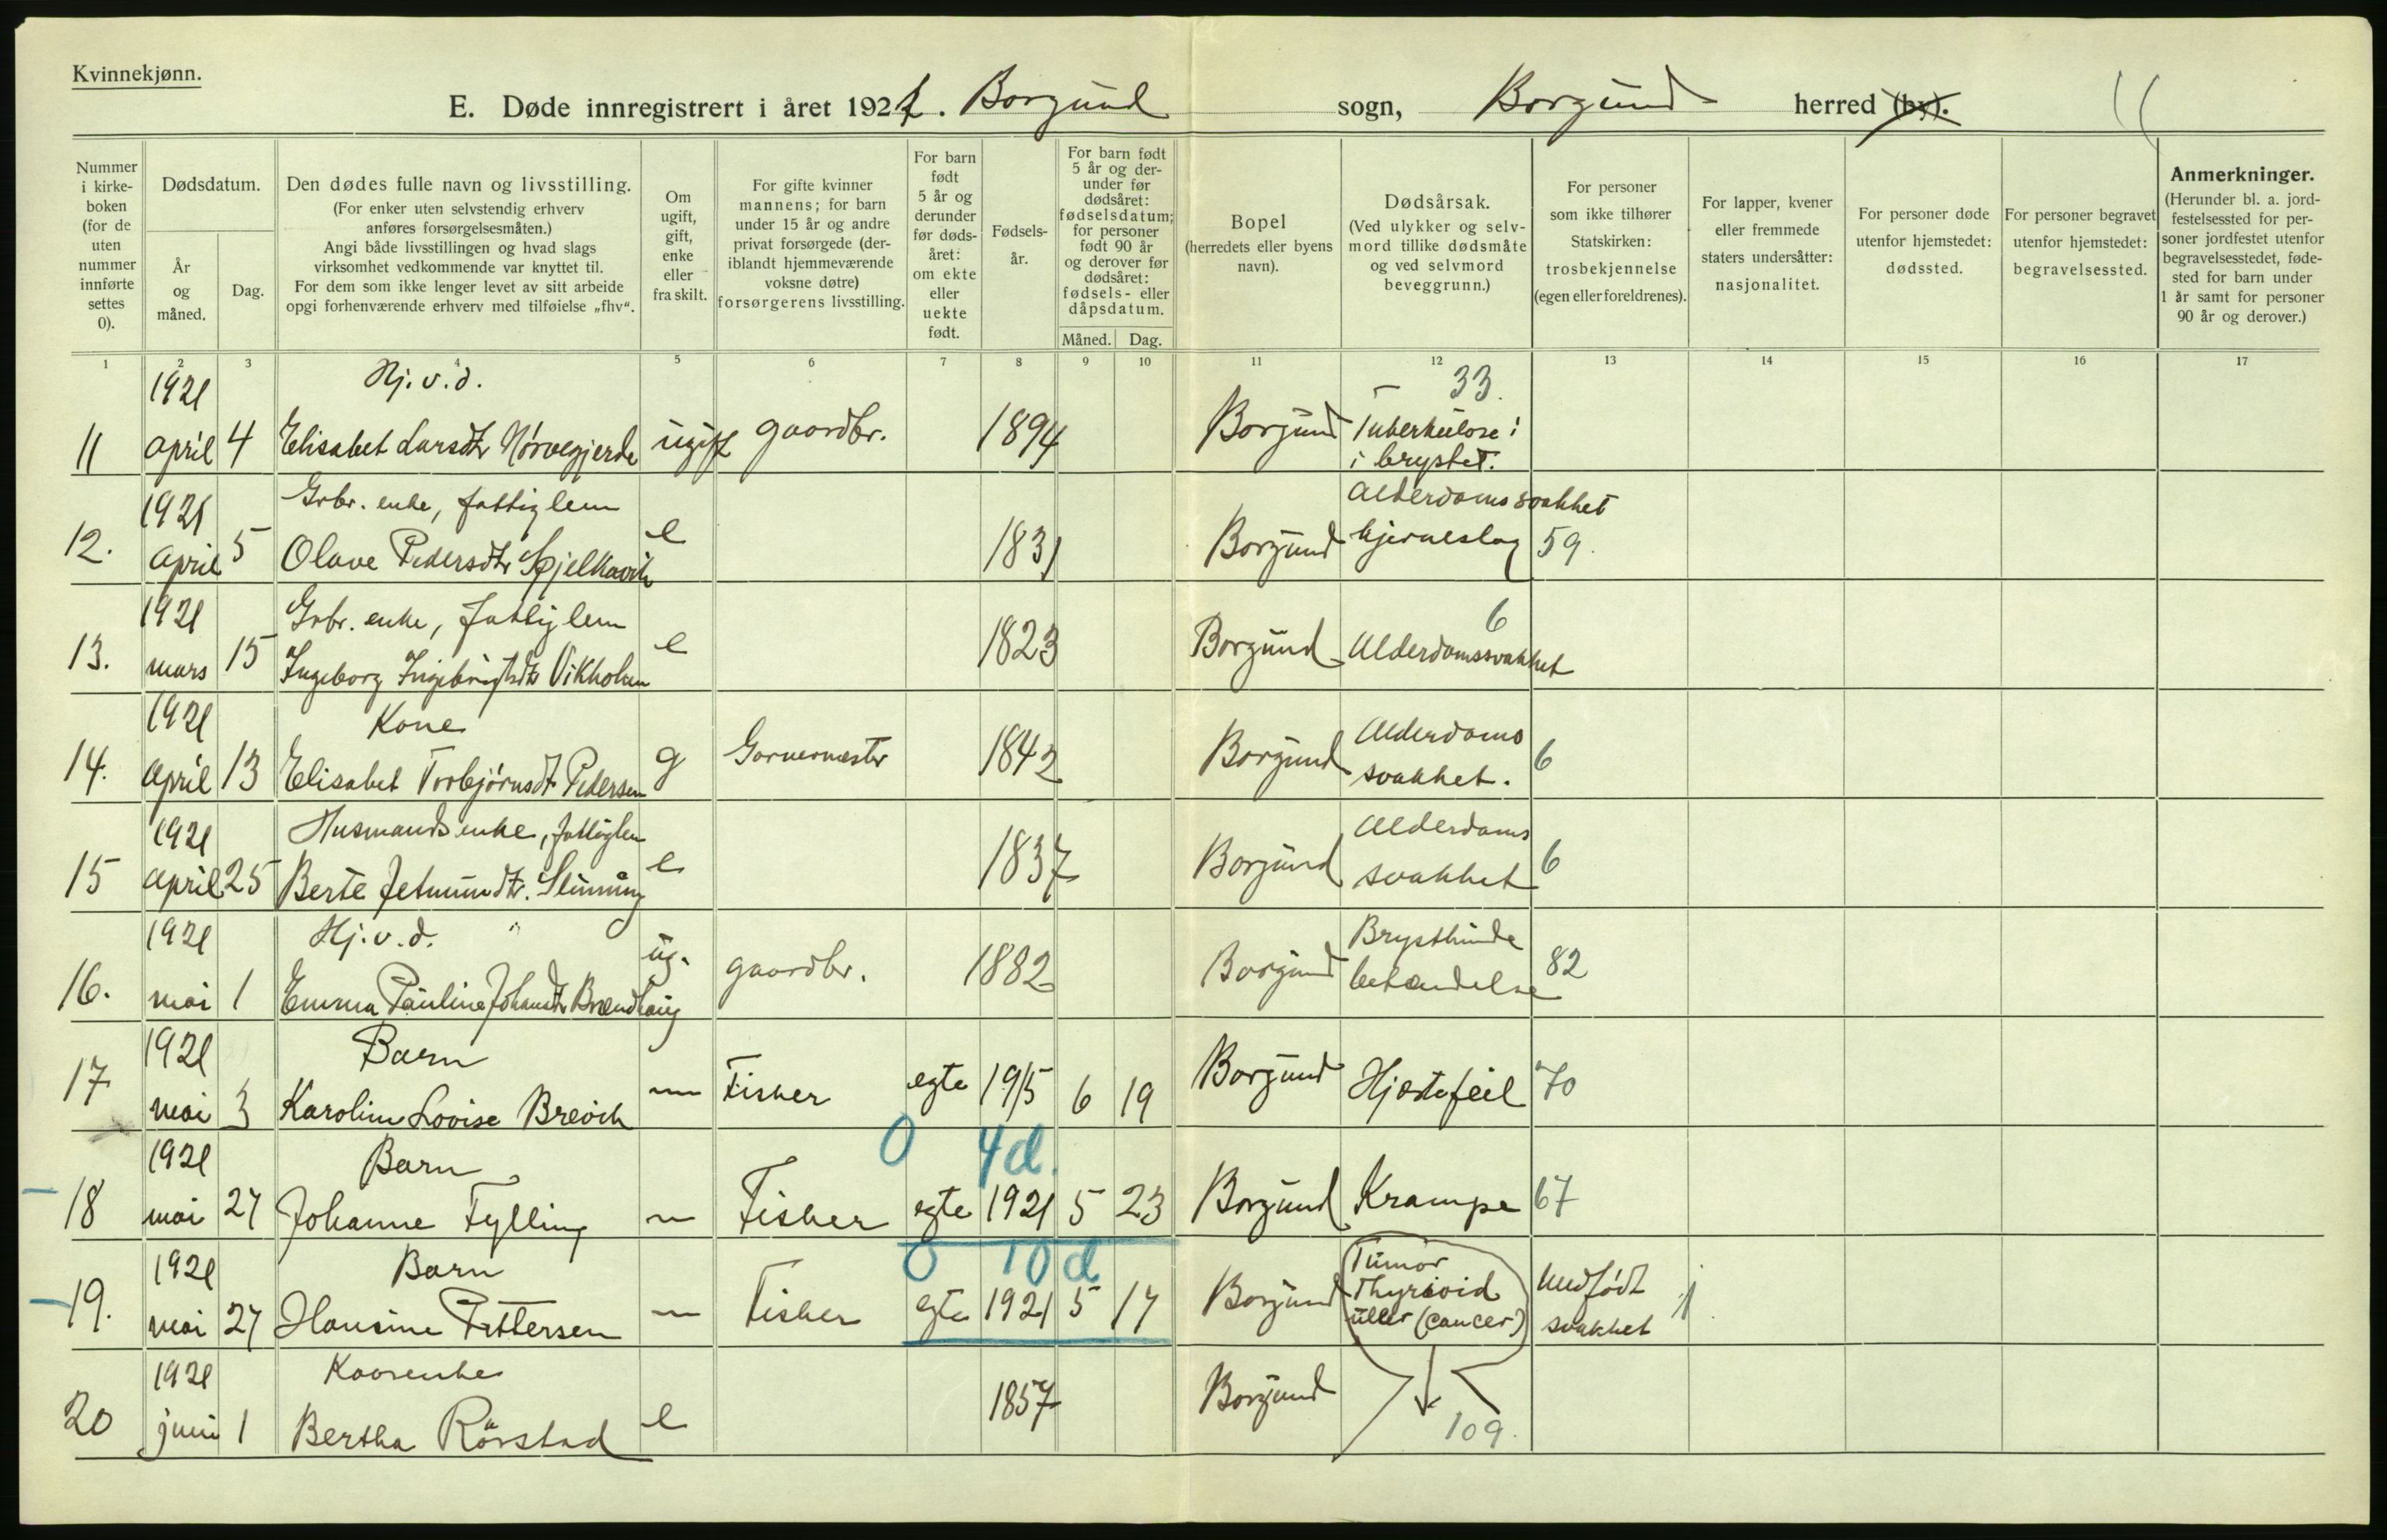 Kvinnekjønn.
E. Døde innregistrert i året 1921. Borgund sogn, Borgund herred (by).
Nummer i kirke-boken (for de uten nummer innførte settes 0).
Dødsdatum.
År og måned.
Dag.
Den dødes fulle navn og livsstilling.
(For enker uten selvstendig erhverv anføres forsørgelsesmåten.)
Angi både livsstillingen og hvad slags virksomhet vedkommende var knyttet til.
For dem som ikke lenger levet av sitt arbeide opgi forhenværende erhverv med tilføielse „fhv“.
Om ugift, gift, enke eller fraskilt.
For gifte kvinner mannens; for barn under 15 år og andre privat forsørgede (der-iblandt hjemmeværende voksne døtre) forsørgerens livsstilling.
For barn født 5 år og derunder før døds-året: om ekte eller uekte født.
Fødsels-år.
For barn født 5 år og der-under før dødsåret: fødselsdatum; for personer født 90 år og derover før dødsåret: fødsels- eller dåpsdatum.
Måned. Dag.
Bopel (herredets eller byens navn).
Dødsårsak.
(Ved ulykker og selv-mord tillike dødsmåte og ved selvmord beveggrunn.)
For personer som ikke tilhører Statskirken: trosbekjennelse (egen eller foreldrenes).
For lapper, kvener eller fremmede staters undersåtter: nasjonalitet.
For personer døde utenfor hjemstedet: dødssted.
For personer begravet utenfor hjemstedet: begravelsessted.
Anmerkninger.
(Herunder bl. a. jord-festelsessted for per-soner jordfestet utenfor begravelsesstedet, føde-sted for barn under 1 år samt for personer 90 år og derover.)
1 2 3 4 5 6 7 8 9 10 11 12 13 14 15 16 17
1921 Hj.v.d. 33.
11 april 4 Elisabet Larsdtr Nørvegjerde ugift gaardbr. 1894 Borgund Tuberkulose i
i brystet.
1921 Grbr. enke, fattiglem Alderdomssvakhet
12. april 5 Olave Pedersdtr Spjelkavik e 1831 Borgund hjerneslag 59.
1921 Grbr. enke, fattiglem 6
13. mars 15 Ingeborg Ingebrigtsdtr Vikholen e 1823 Borgund Alderdomssvakhet
1921 Kone Alderdoms
14. april 13 Elisabet Torbjørnsdt Pedersen g Garvermester 1842 Borgund svakhet. 6
1921 Husmandsenke, fattiglem Alderdoms
15 april 25 Berte Jetmundtr. Slinning e 1837 Borgund svakhet 6
1921 Hj.v.d. ug. Brysthinde
16. mai 1 Emma Pauline Johansdtr Brendhaug gaardbr. 1882 Borgund betændelse 82
1921 Barn
17 mai 3 Karoline Lovise Breivik — Fisker egte 1915 6 19 Borgund Hjertefeil 70
1921 Barn 0 4d.
18 mai 27 Johanne Fylling — Fisker egte 1921 5 23 Borgund Krampe 67
1921 Barn 0 10 d
19. mai 27 Hansine Pettersen — Fisker egte 1921 5 17 Borgund Tumor Thyrioid (cancer) Medfødt svakhet 1.
1921 Kaarenke
20 juni 1 Bertha Rörstad e 1857 Borgund
109.